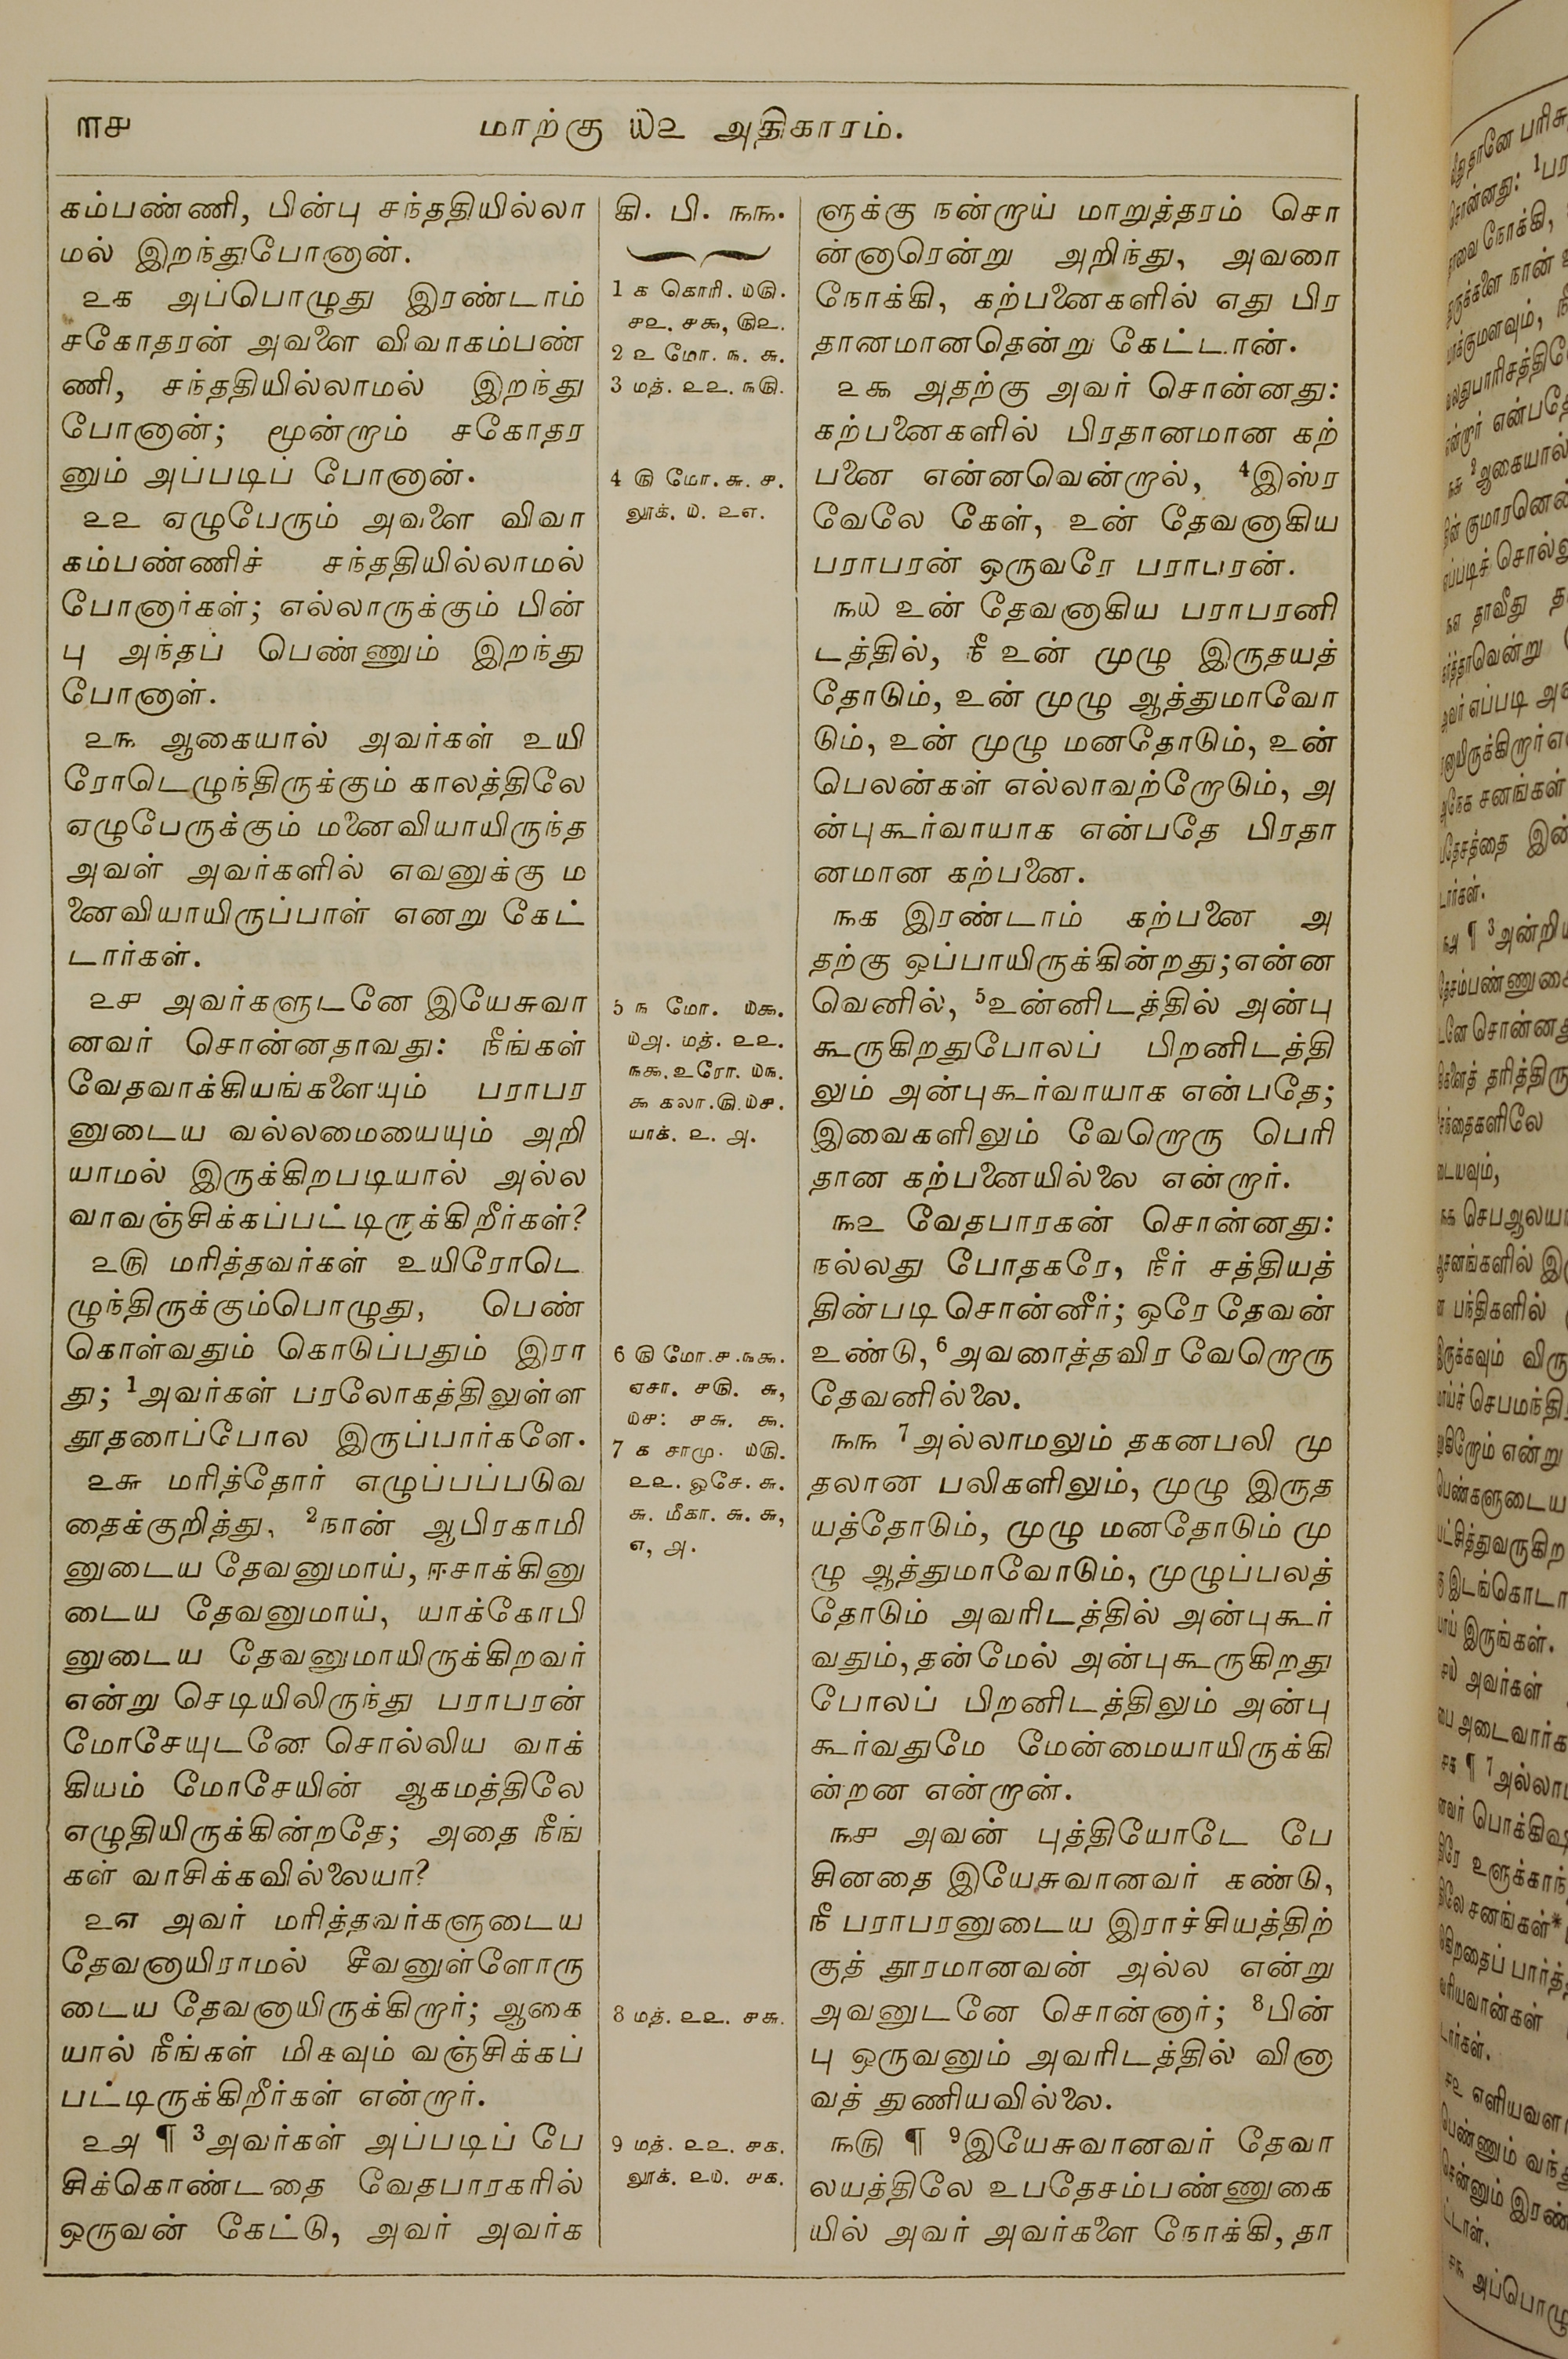 ௱௪
மாற்கு ௰௨ அதிகாரம்.
கம்பண்ணி, பின்பு சந்ததியில்லா
மல் இறந்துபோனான்.
௨௧ அப்பொழுது இரண்டாம்
சகோதரன் அவளை விவாகம்பண்
ணி, சந்ததியில்லாமல் இறந்து
போனான்; மூன்றாம் சகோதர
னும் அப்படிப் போனான்.
௨௨ ஏழுபேரும் அவளை விவா
கம்பண்ணிச் சந்ததியில்லாமல்
போனார்கள்; எல்லாருக்கும் பின்
பு அந்தப் பெண்ணும் இறந்து
போனாள்.
௨௩ ஆகையால் அவர்கள் உயி
ரோடெழுந்திருக்கும் காலத்திலே
ஏழுபேருக்கும் மனைவியாயிருந்த
அவள் அவர்களில் எவனுக்கு ம
னைவியாயிருப்பாள் எனறு கேட்
டார்கள்.
௨௪ அவர்களுடனே இயேசுவா
னவர் சொன்னதாவது: நீங்கள்
வேதவாக்கியங்களையும் பராபர
னுடைய வல்லமையையும் அறி
யாமல் இருக்கிறபடியால் அல்ல
வாவஞ்சிக்கப்பட்டிருக்கிறீர்கள்?
௨௫ மரித்தவர்கள் உயிரோடெ
ழுந்திருக்கும்பொழுது, பெண்
கொள்வதும் கொடுப்பதும் இரா
து; 1அவர்கள் பரலோகத்திலுள்ள
தூதரைப்போல இருப்பார்களே.
௨௬ மரித்தோர் எழுப்பப்படுவ
தைக்குறித்து, 2நான் ஆபிரகாமி
னுடைய தேவனுமாய், ஈசாக்கினு
டைய தேவனுமாய், யாக்கோபி
னுடைய தேவனுமாயிருக்கிறவர்
என்று செடியிலிருந்து பராபரன்
மோசேயுடனே சொல்லிய வாக்
கியம் மோசேயின் ஆகமத்திலே
எழுதியிருக்கின்றதே; அதை நீங்
கள் வாசிக்கவில்லையா?
௨௭ அவர் மரித்தவர்களுடைய
தேவனாயிராமல் சீவனுள்ளோரு
டைய தேவனாயிருக்கிறார்; ஆகை
யால் நீங்கள் மிகவும் வஞ்சிக்கப்
பட்டிருக்கிறீர்கள் என்றார்.
௨௮ ¶ 3அவர்கள் அப்படிப் பே
சிக்கொண்டதை வேதபாரகரில்
ஒருவன் கேட்டு, அவர் அவர்க
கி. பி. ௩௩.
1 ௧ கொரி. ௰௫.
௪௨. ௪௯, ௫௨.
2 ௨ மோ. ௩. ௬.
3 மத். ௨௨. ௩௫.
4 ௫ மோ. ௬. ௪.
லூக். ௰. ௨௭.
5 ௩ மோ. ௰௯.
௰௮. மத். ௨௨.
௩௯. உரோ. ௰௩.
௯ கலா. ௫. ௰௪.
யாக். ௨. ௮.
6 ௫ மோ. ௪. ௩௯.
ஏசா. ௪௫. ௬,
௰௪: ௪௬. ௯.
7 ௧ சாமு. ௰௫.
௨௨. ஓசே. ௬.
௬. மீகா. ௬. ௬,
௭, ௮.
8 மத். ௨௨. ௪௬.
9 மத். ௨௨. ௪௧.
லூக். ௨௰. ௪௧.
ளுக்கு நன்றாய் மாறுத்தரம் சொ
ன்னாரென்று அறிந்து, அவரை
நோக்கி, கற்பனைகளில் எது பிர
தானமானதென்று கேட்டான்.
௨௯ அதற்கு அவர் சொன்னது:
கற்பனைகளில் பிரதானமான கற்
பனை என்னவென்றால், 4இஸ்ர
வேலே கேள், உன் தேவனாகிய
பராபரன் ஒருவரே பராபரன்.
௩௰ உன் தேவனாகிய பராபரனி
டத்தில், நீ உன் முழு இருதயத்
தோடும், உன் முழு ஆத்துமாவோ
டும், உன் முழு மனதோடும், உன்
பெலன்கள் எல்லாவற்றோடும், அ
ன்புகூர்வாயாக என்பதே பிரதா
னமான கற்பனை.
௩௧ இரண்டாம் கற்பனை அ
தற்கு ஒப்பாயிருக்கின்றது; என்ன
வெனில், 5உன்னிடத்தில் அன்பு
கூருகிறதுபோலப் பிறனிடத்தி
லும் அன்புகூர்வாயாக என்பதே;
இவைகளிலும் வேறொரு பெரி
தான கற்பனையில்லை என்றார்.
௩௨ வேதபாரகன் சொன்னது:
நல்லது போதகரே, நீர் சத்தியத்
தின்படி சொன்னீர்; ஒரே தேவன்
உண்டு, 6அவரைத்தவிர வேறொரு
தேவனில்லை.
௩௩ 7அல்லாமலும் தகனபலி மு
தலான பலிகளிலும், முழு இருத
யத்தோடும், முழு மனதோடும் மு
ழு ஆத்துமாவோடும், முழுப்பலத்
தோடும் அவரிடத்தில் அன்புகூர்
வதும், தன்மேல் அன்புகூருகிறது
போலப் பிறனிடத்திலும் அன்பு
கூர்வதுமே மேன்மையாயிருக்கி
ன்றன என்றான்.
௩௪ அவன் புத்தியோடே பே
சினதை இயேசுவானவர் கண்டு,
நீ பராபரனுடைய இராச்சியத்திற்
குத் தூரமானவன் அல்ல என்று
அவனுடனே சொன்னார்; 8பின்
பு ஒருவனும் அவரிடத்தில் வினா
வத் துணியவில்லை.
௩௫ ¶ 9இயேசுவானவர் தேவா
லயத்திலே உபதேசம்பண்ணுகை
யில் அவர் அவர்களை நோக்கி, தா